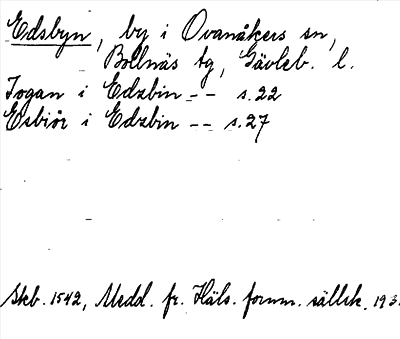 Edsbyn, by i Ovanåkers sn,
Bollnäs tg, Gävleb. l.
Jogan i Edzbin -- s. 22
Esbiör i Edzbin -- s. 27
Skb. 1542, Medd. fr. Häls. fornm. sällsk. 193